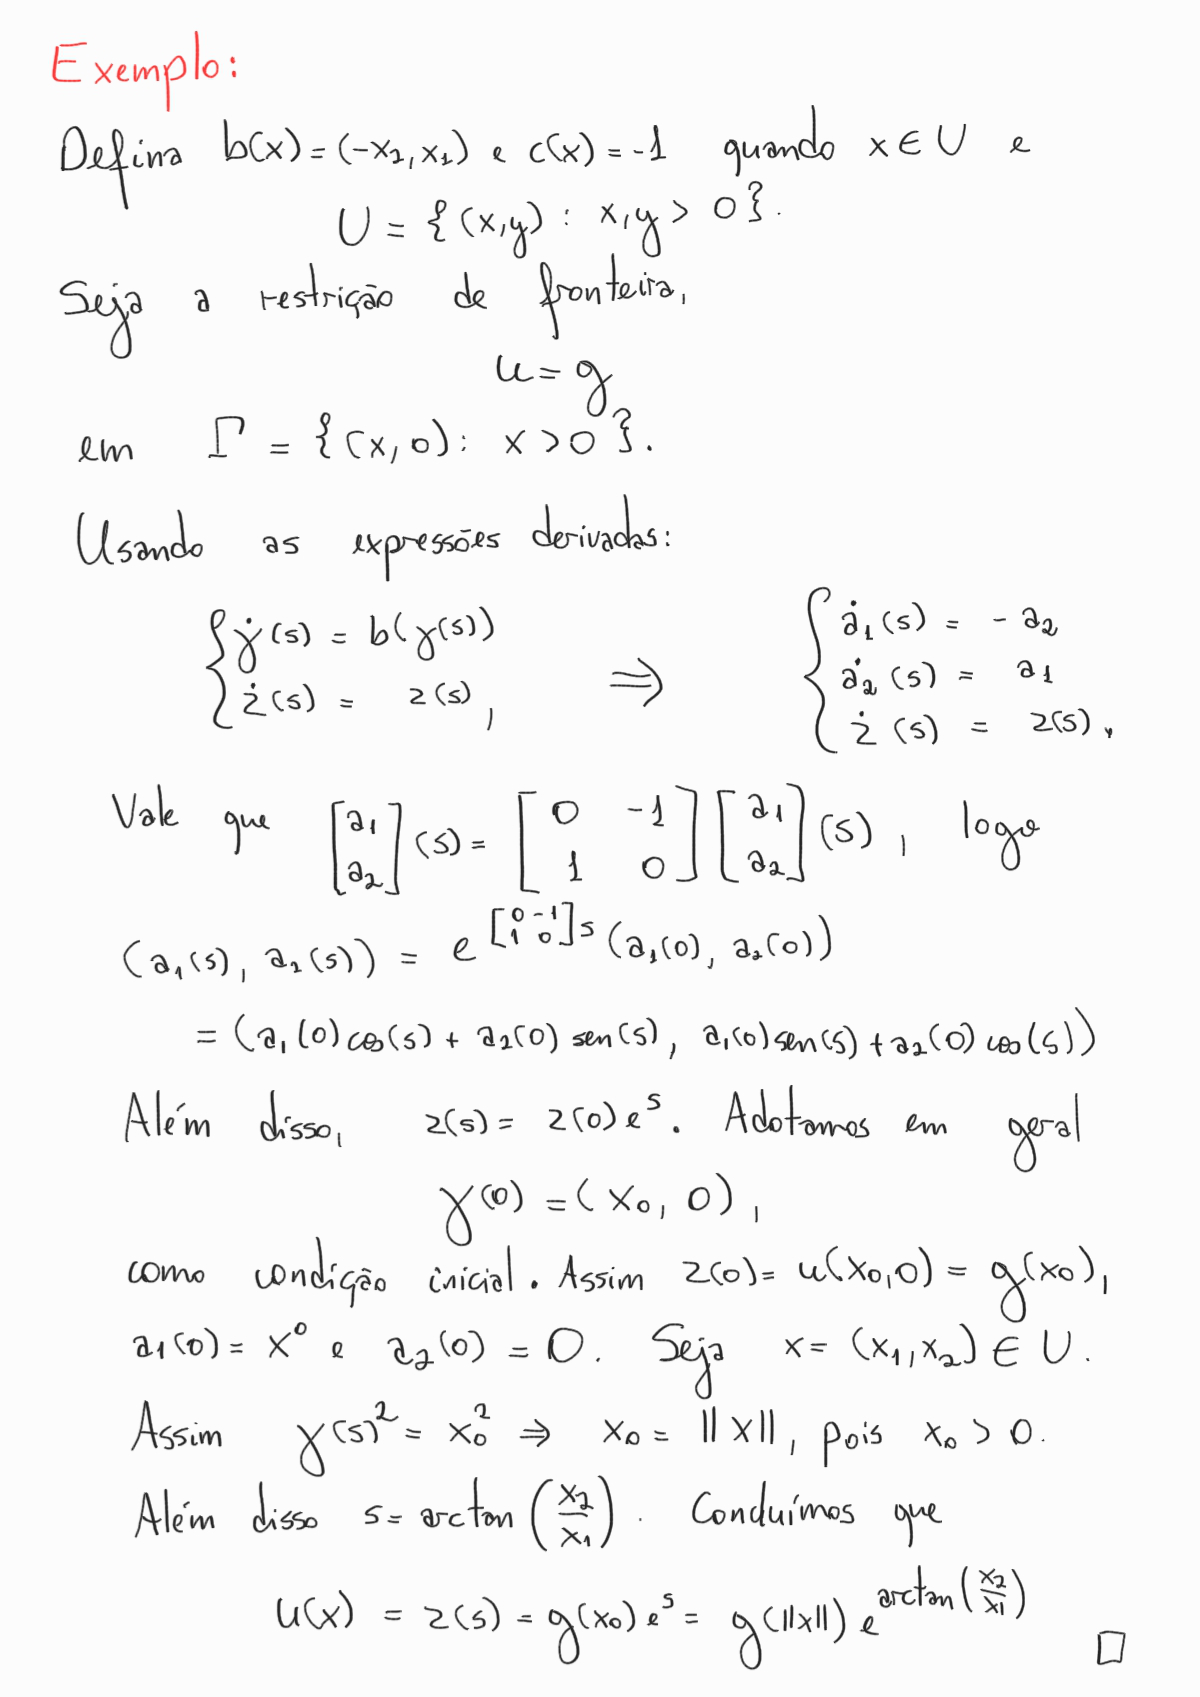 Exemplo:
Defina b(x) = (-x₂, x₁) e c(x) = -1 quando x ∈ U e
U = {(x,y) : x,y > 0}.
Seja a restrição de fronteira,
u = g
em Γ = {(x,0) : x > 0}.
Usando as expressões derivadas:
{ γ̇(s) = b(γ(s)) ⇒ { ȧ₁(s) = -a₂
ż(s) = z(s), ȧ₂(s) = a₁
ż(s) = z(s).
Vale que [a₁ a₂](s) = [0 -1 1 0][a₁ a₂](s), logo
(a₁(s), a₂(s)) = e^{[0 -1 1 0]s} (a₁(0), a₂(0))
= (a₁(0)cos(s) + a₂(0) sen(s), a₁(0)sen(s) + a₂(0) cos(s))
Além disso, z(s) = z(0)eˢ. Adotamos em geral
γ(0) = (x₀, 0),
como condição inicial. Assim z(0) = u(x₀,0) = g(x₀),
a₁(0) = x⁰ e a₂(0) = 0. Seja x = (x₁, x₂) ∈ U.
Assim γ(s)² = x₀² ⇒ x₀ = ||x||, pois x₀ > 0.
Além disso s = arctan(x₂/x₁). Concluímos que
u(x) = z(s) = g(x₀)eˢ = g(||x||) e^{arctan(x₂/x₁)}
□